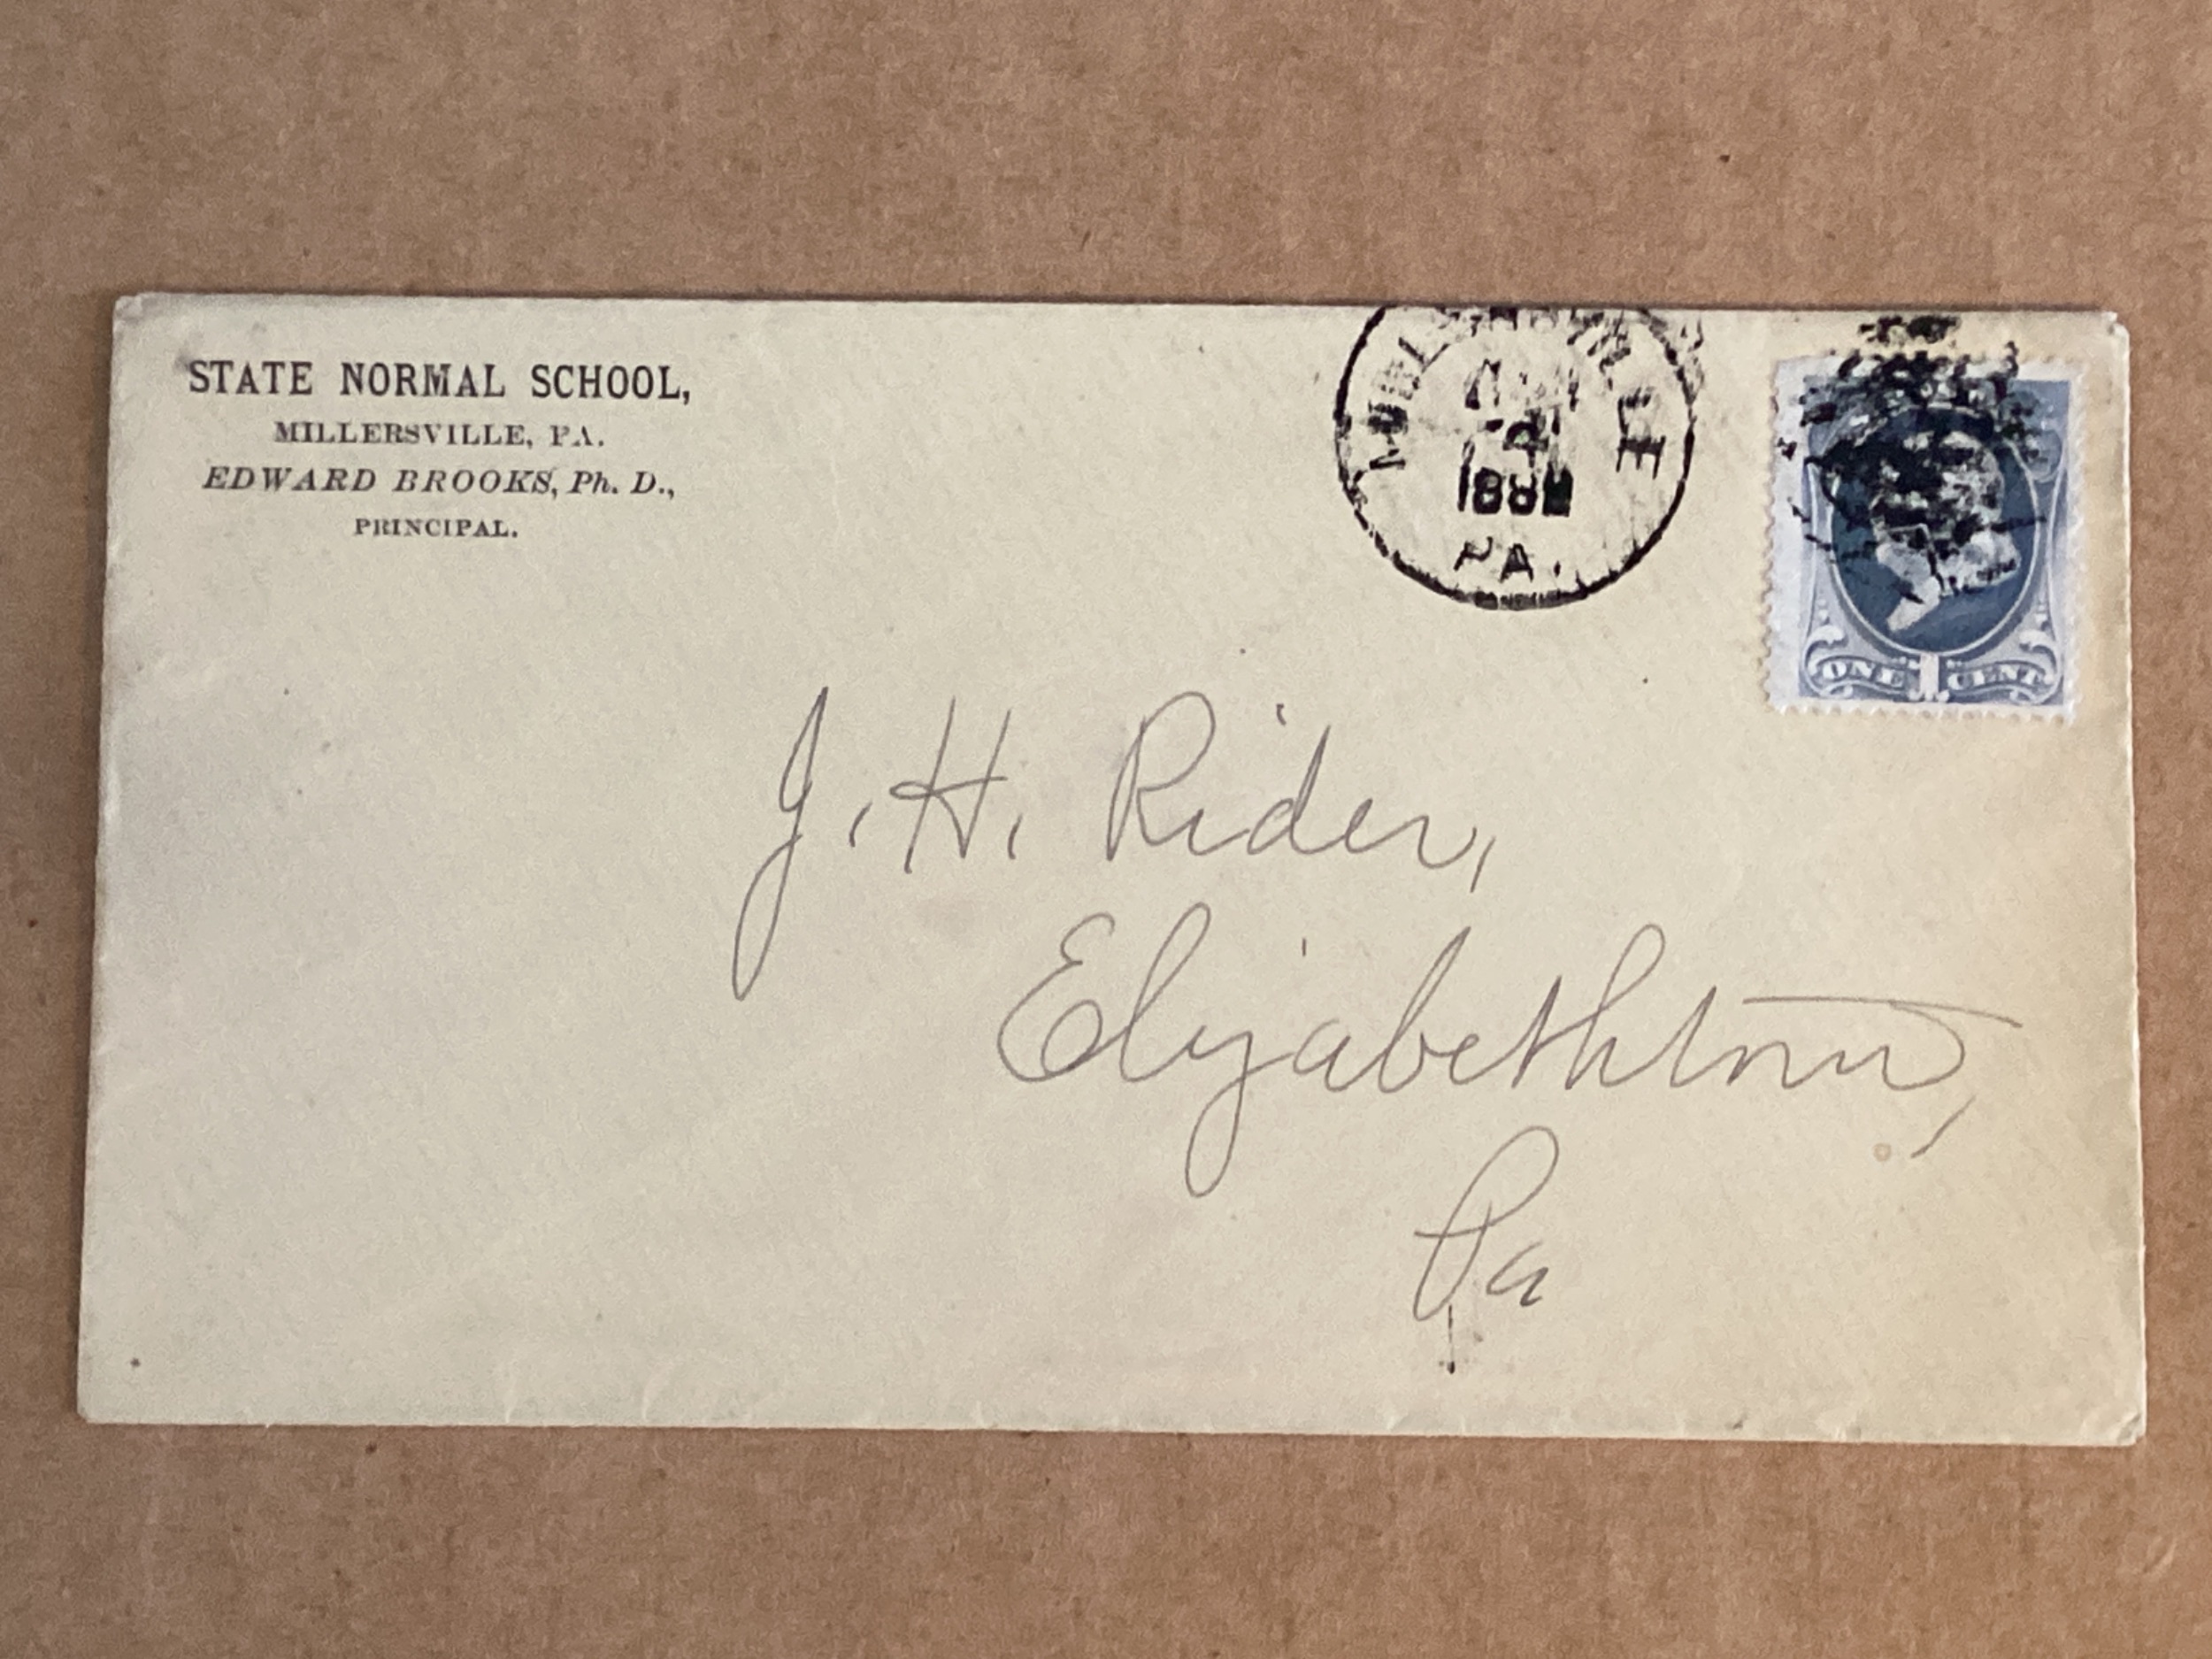 STATE NORMAL SCHOOL,
MILLERSVILLE, PA.
EDWARD BROOKS, Ph. D.,
PRINCIPAL.
MILLERSVILLE
PA.
ONE 1 CENT
J. H. Rider,
Elizabethtown,
Pa